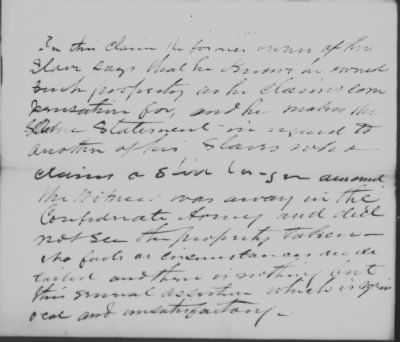 In this claim the former owner of the
Slave says that he knows he owned
such property as he claims com
pensation for, and he makes the
same statement in regard to
another of his slaves who
claims a still larger amount
the witness was away in the
Confederate Army and did
not see the property taken—
No facts or circumstances is de
tailed and there is nothing but
this general assertion which is equiv
ocal and unsatisfactory.